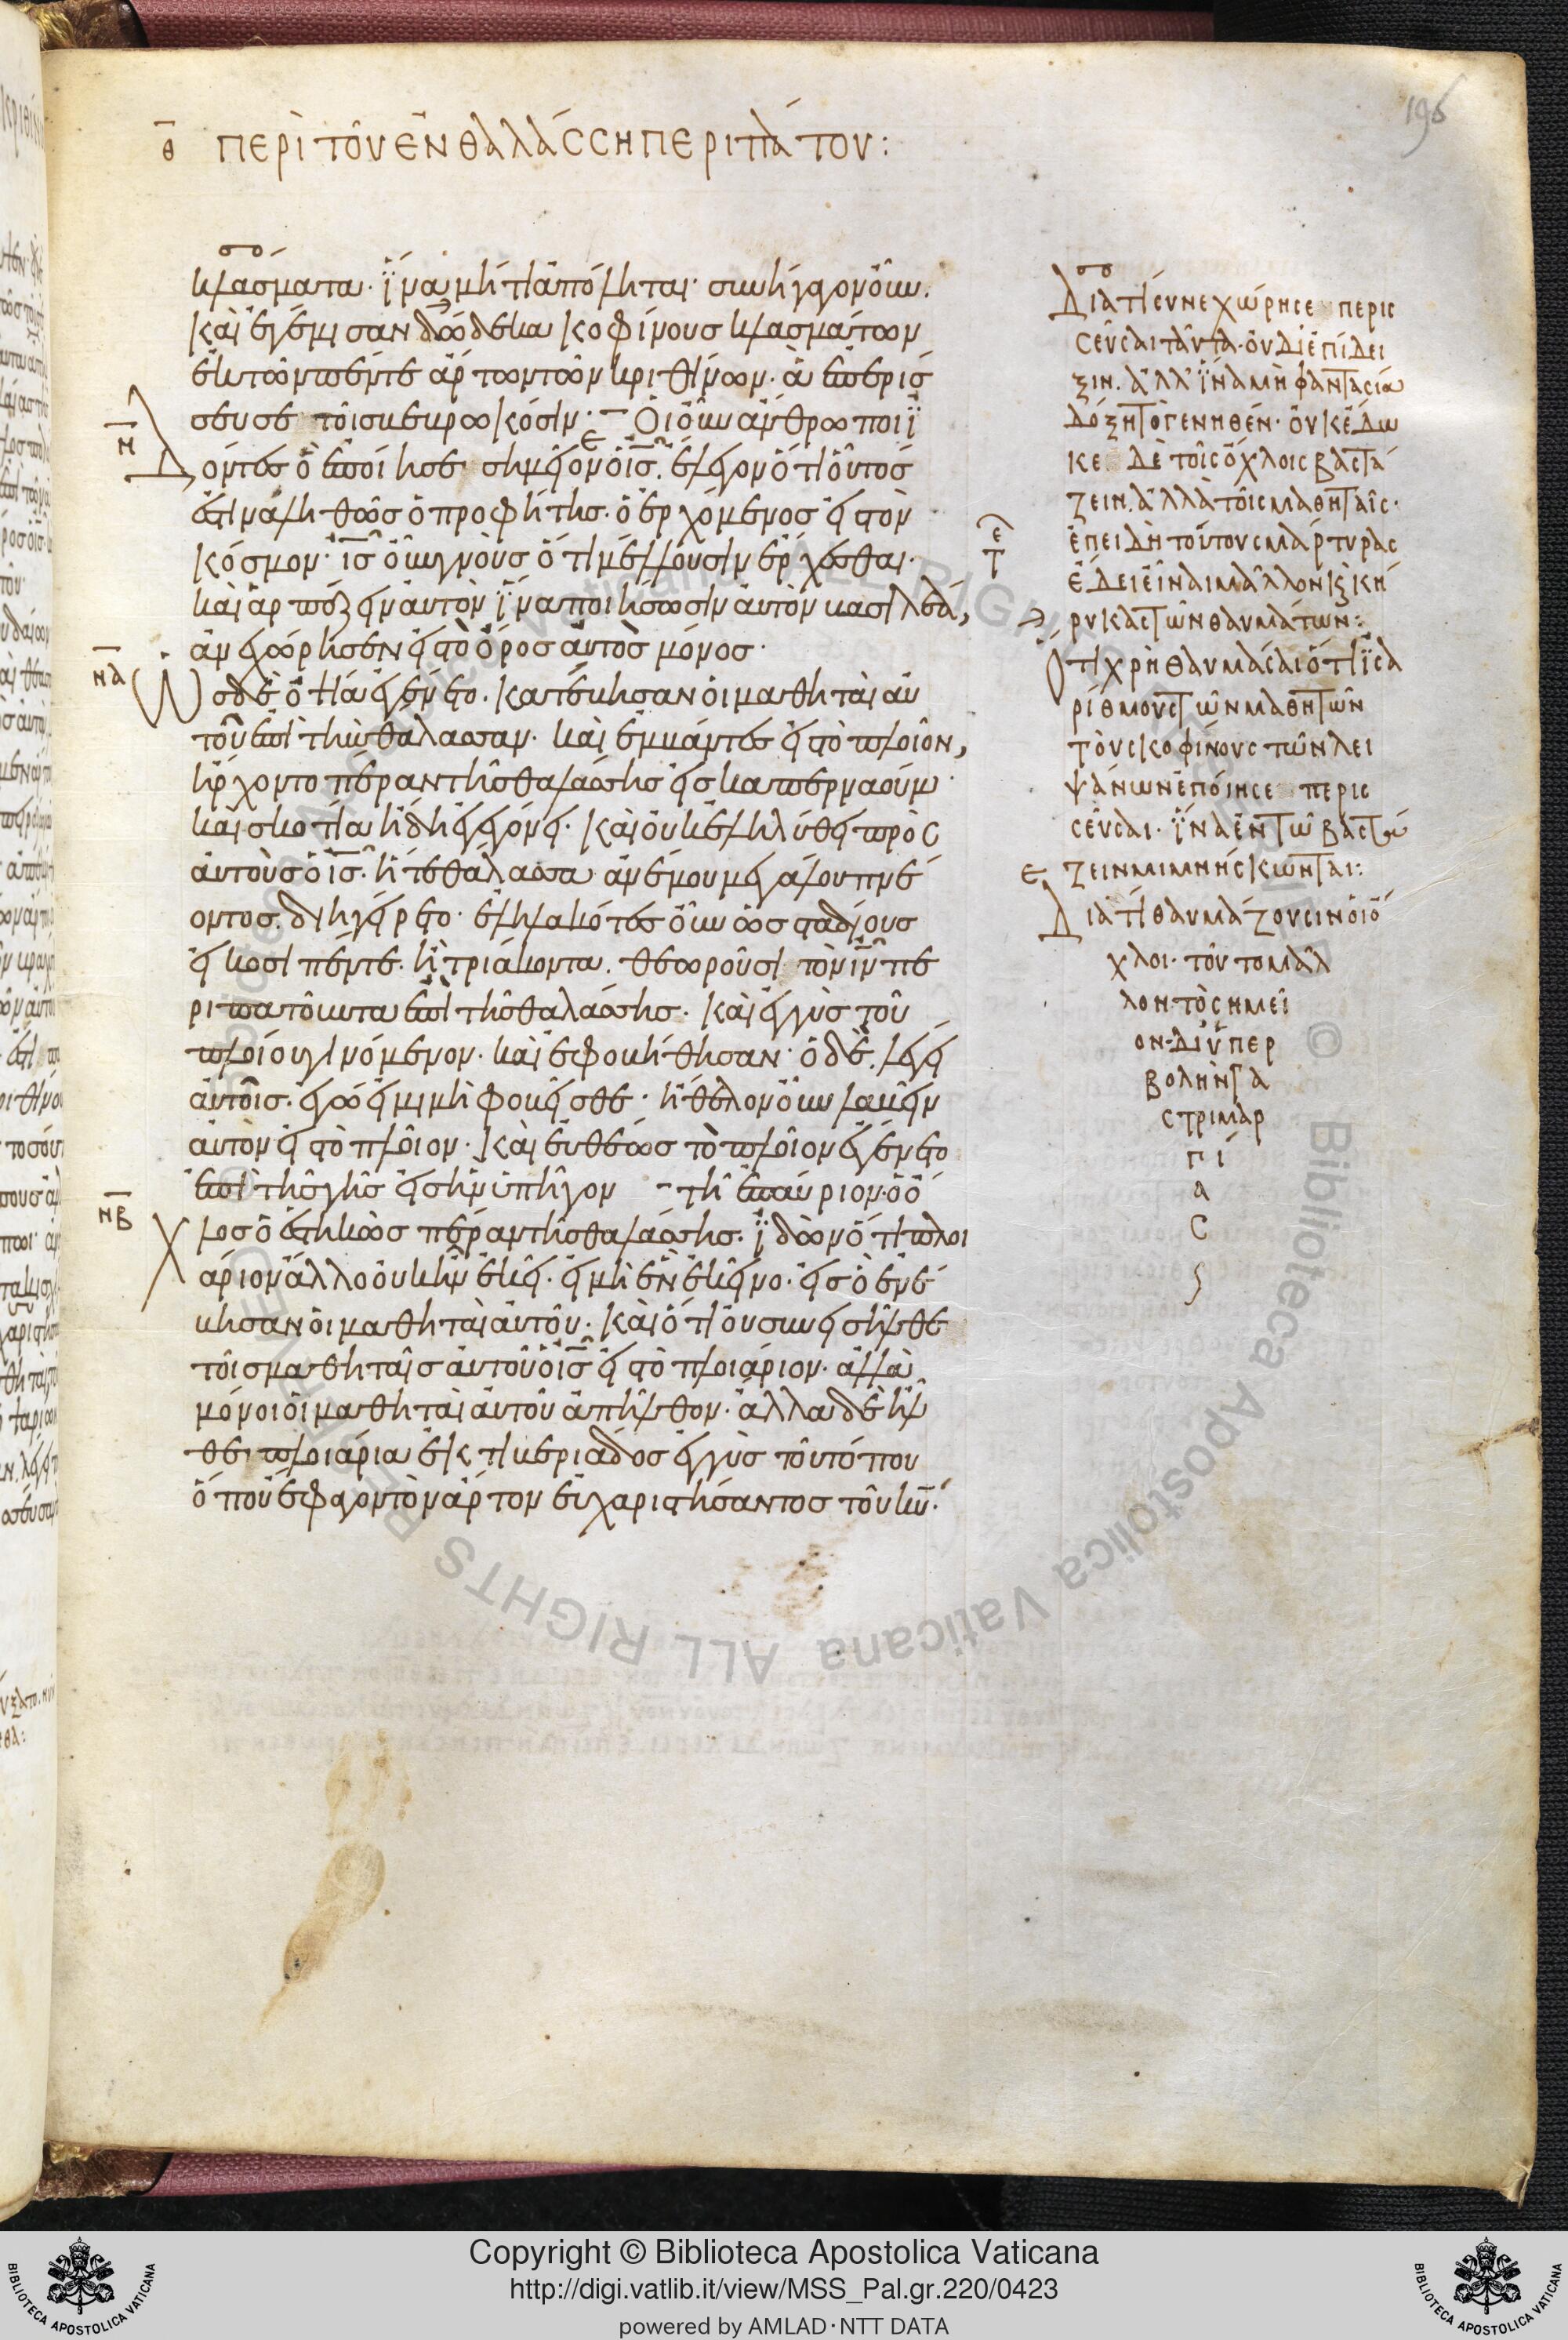 196
θ περὶ τοῦ ἐν θαλάσσῃ περιπάτου:
κλάσματα· ἵνα μή τι ἀπόληται· συνήγαγον οὖν.
καὶ ἐγέμισαν δώδεκα κοφίνους κλασμάτων
ἐκ τῶν πέντε ἄρτων τῶν κριθίνων· ἃ ἐπερίσ
σευσε τοῖς βεβρωκόσιν· Οἱ οὖν ἄνθρωποι ἰ
νη
δόντες ὃ ἐποίησε σημεῖον ὁ ις. ἔλεγον ὅτι οὗτός
ἐστιν ἀληθῶς ὁ προφήτης. ὁ ἐρχόμενος εἰς τὸν
κόσμον· ις οὖν γνοὺς ὅτι μέλλουσιν ἔρχεσθαι·
καὶ ἁρπάζειν αὐτὸν ἵνα ποιήσωσιν αὐτὸν βασιλέα,
ἀνεχώρησεν εἰς τὸ ὄρος αὐτὸς μόνος·
να
Ὡς δὲ ὀψία ἐγένετο. κατέβησαν οἱ μαθηταὶ αὐ
τοῦ ἐπὶ τὴν θάλασσαν· καὶ ἐμβάντες εἰς τὸ πλοῖον,
ἤρχοντο πέραν τῆς θαλάσσης εἰς καπερναούμ·
καὶ σκοτία ἤδη ἐγεγόνει· καὶ οὐκ ἐληλύθει πρὸς
αὐτοὺς ὁ ις. ἥ τε θάλασσα ἀνέμου μεγάλου πνέ
οντος. διηγείρετο· ἐληλακότες οὖν ὡς σταδίους
εἴκοσι πέντε. ἢ τριάκοντα. θεωροῦσι τὸν ιν πε
ριπατοῦντα ἐπὶ τῆς θαλάσσης. καὶ ἐγγὺς τοῦ
πλοίου γινόμενον. καὶ ἐφοβήθησαν· ὁ δὲ. λέγει
αὐτοῖς. ἐγώ εἰμι μὴ φοβεῖσθε· ἤθελον οὖν λαβεῖν
αὐτὸν εἰς τὸ πλοῖον· καὶ εὐθέως τὸ πλοῖον ἐγένετο
ἐπὶ τῆς γῆς εἰς ἣν ὑπῆγον τῇ ἐπαύριον ὁ ὄ
νβ
χλος ὁ ἑστηκὼς πέραν τῆς θαλάσσης. ἰδὼν ὅτι πλοι
άριον ἄλλο οὐκ ἦν ἐκεῖ. εἰ μὴ ἓν ἐκεῖνο. εἰς ὃ ἐνέ
βησαν οἱ μαθηταὶ αὐτοῦ. καὶ ὅτι οὐ συνεισῆλθε
τοῖς μαθηταῖς αὐτοῦ ὁ ις εἰς τὸ πλοιάριον. ἀλλὰ
μόνοι οἱ μαθηταὶ αὐτοῦ ἀπῆλθον. ἄλλα δὲ ἦλ
θε πλοιάρια ἐκ τιβεριάδος ἐγγὺς τοῦ τόπου
ὅπου ἔφαγον τὸν ἄρτον εὐχαριστήσαντος τοῦ κυ.
Διατί συνεχώρησε περισ
σεῦσαι ταῦτα. οὐ δι' ἐπίδει
ξιν. ἀλλ' ἵνα μὴ φαντασία
δόξῃ τὸ γενηθέν. οὐκ ἔδω
κε δὲ τοῖς ὄχλοις βαστά
ζειν. ἀλλὰ τοῖς μαθηταῖς.
ἐπειδὴ τούτους μάρτυρας
ἔδει εἶναι μᾶλλον καὶ κή
ρυκας τῶν θαυμάτων:
Ὅτι χρὴ θαυμάσαι ὅτι ἰσα
ρίθμους τῶν μαθητῶν
τοὺς κοφίνους τῶν λει
ψάνων ἐποίησε περισ
σεῦσαι. ἵνα ἐν τῷ βαστά
ζειν μιμνήσκωνται:
Διατί θαυμάζουσιν οἱ ὄ
χλοι. τοῦτο μᾶλ
λον τὸ σημεῖ
ον. δι' ὑπερ
βολὴν γα
στριμαρ
γί
α
ς
Copyright © Biblioteca Apostolica Vaticana
http://digi.vatlib.it/view/MSS_Pal.gr.220/0423
powered by AMLAD·NTT DATA